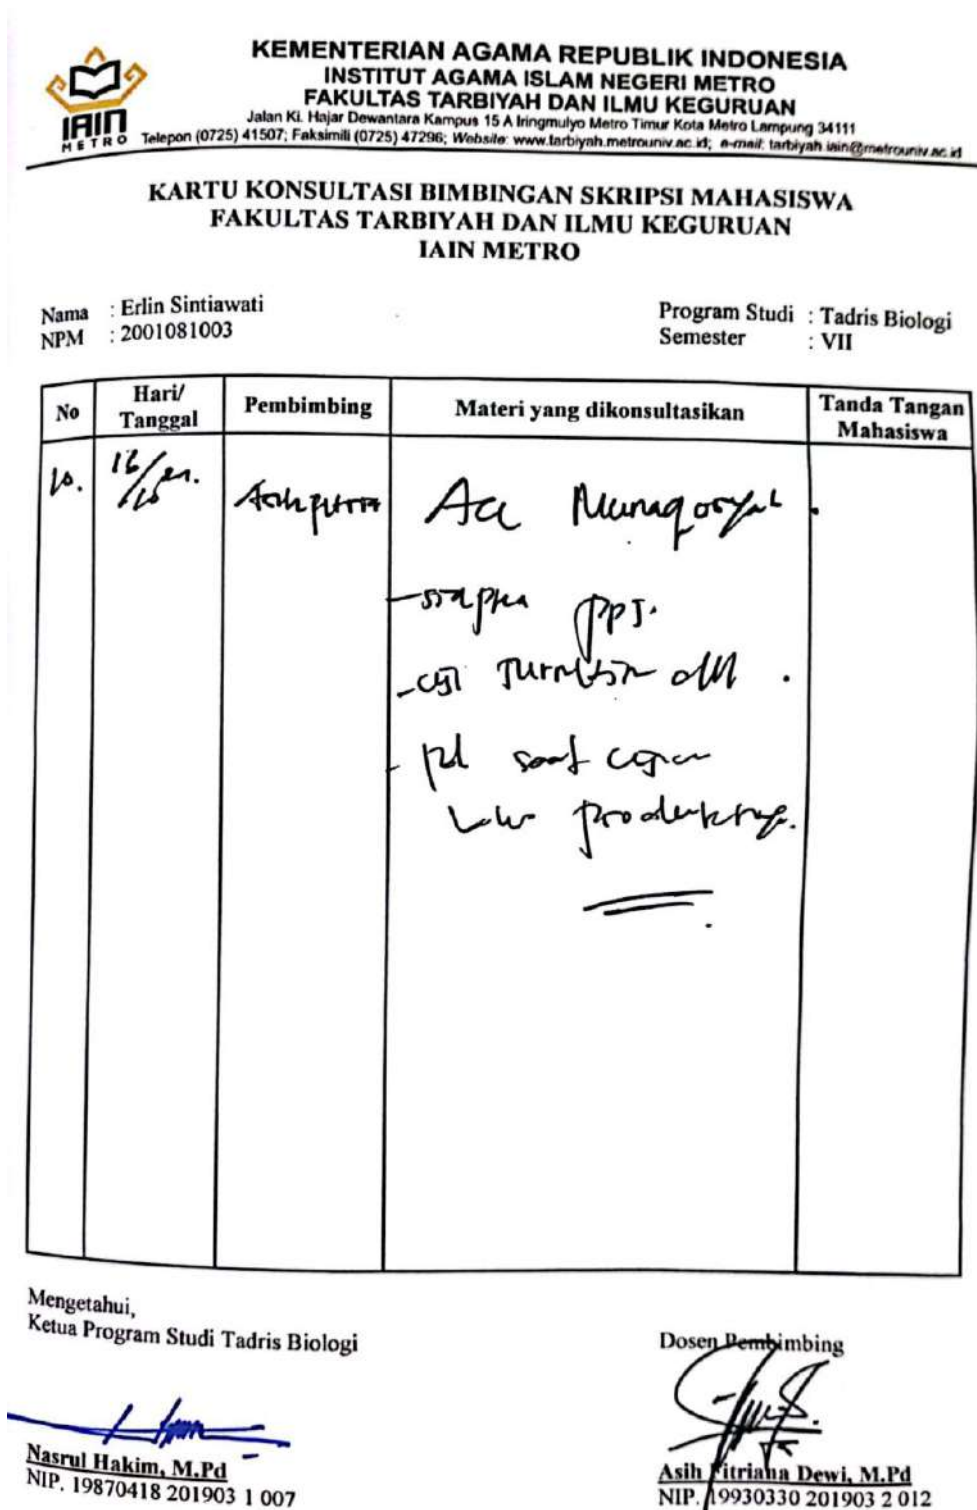 KEMENTERIAN AGAMA REPUBLIK INDONESIA
INSTITUT AGAMA ISLAM NEGERI METRO
FAKULTAS TARBIYAH DAN ILMU KEGURUAN
Jalan Ki. Hajar Dewantara Kampus 15 A Iringmulyo Metro Timur Kota Metro Lampung 34111
Telepon (0725) 41507; Faksimili (0725) 47296; Website: www.tarbiyah.metrouniv.ac.id; e-mail: tarbiyah.iain@metrouniv.ac.id
IAIN
METRO
KARTU KONSULTASI BIMBINGAN SKRIPSI MAHASISWA
FAKULTAS TARBIYAH DAN ILMU KEGURUAN
IAIN METRO
Nama : Erlin Sintiawati
NPM : 2001081003
Program Studi : Tadris Biologi
Semester : VII
No Hari/ Tanggal Pembimbing Materi yang dikonsultasikan Tanda Tangan Mahasiswa
10. Acc Munaqosyah.
- siapkan ppt.
- Turnitin dll.
- pd saat
produknya.
Mengetahui,
Ketua Program Studi Tadris Biologi
Nasrul Hakim, M.Pd
NIP. 19870418 201903 1 007
Dosen Pembimbing
Asih Fitriana Dewi, M.Pd
NIP. 19930330 201903 2 012